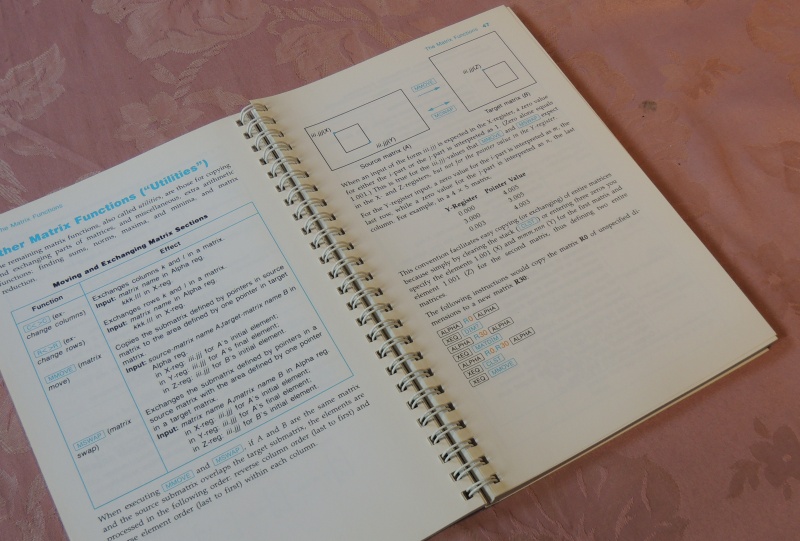 The Matrix Functions
ther Matrix Functions ("Utilities")
e remaining matrix functions, also called utilities, are those for copying
nd exchanging parts of matrices, and miscellaneous, extra arithmetic
functions: finding sums, norms, maxima, and minima, and matrix
reduction.
Moving and Exchanging Matrix Sections
Function Effect
(ex-
change columns)
Exchanges columns k and l in a matrix.
Input: matrix name in Alpha reg.
kkk.lll in X-reg.
(ex-
change rows)
Exchanges rows k and l in a matrix.
Input: matrix name in Alpha reg.
kkk.lll in X-reg.
MMOVE (matrix
move)
Copies the submatrix defined by pointers in source
matrix to the area defined by one pointer in target
matrix.
Input: source-matrix name A,target-matrix name B in
Alpha reg.
in X-reg: iii.jjj for A's initial element;
in Y-reg: iii.jjj for A's final element;
in Z-reg: iii.jjj for B's initial element.
MSWAP (matrix
swap)
Exchanges the submatrix defined by pointers in a
source matrix with the area defined by one pointer
in a target matrix.
Input: matrix name A,matrix name B in Alpha reg.
in X-reg: iii.jjj for A's initial element;
in Y-reg: iii.jjj for A's final element;
in Z-reg: iii.jjj for B's initial element.
When executing MMOVE and MSWAP, if A and B are the same matrix
and the source submatrix overlaps the target submatrix, the elements are
processed in the following order: reverse column order (last to first) and
se element order (last to first) within each column.
The Matrix Functions 47
iii.jjj(X)
iii.jjj(Y)
Source matrix (A)
MMOVE
MSWAP
iii.jjj(Z)
Target matrix (B)
When an input of the form iii.jjj is expected in the X-register, a zero value
for either the i-part or the j-part is interpreted as 1. (Zero alone equals
1.001.) This is true for the iii.jjj-values that MMOVE and MSWAP expect
in the X- and Z-registers, but not for the pointer value in the Y-register.
For the Y-register input, a zero value for the i-part is interpreted as m, the
last row, while a zero value for the j-part is interpreted as n, the last
column. For example, in a 4 × 5 matrix:
Y-Register Pointer Value
0.000 4.005
3.000 3.005
0.003 4.003
This convention facilitates easy copying (or exchanging) of entire matrices
because simply by clearing the stack (CLST) or entering three zeros you
specify the elements 1.001 (X) and mmm.nnn (Y) for the first matrix and
element 1.001 (Z) for the second matrix, thus defining two entire
matrices.
The following instructions would copy the matrix R0 of unspecified di-
mensions to a new matrix R30
ALPHA R0 ALPHA
XEQ DIM?
ALPHA R30 ALPHA
XEQ MATDIM
ALPHA R0,R30 ALPHA
XEQ CLST
XEQ MMOVE